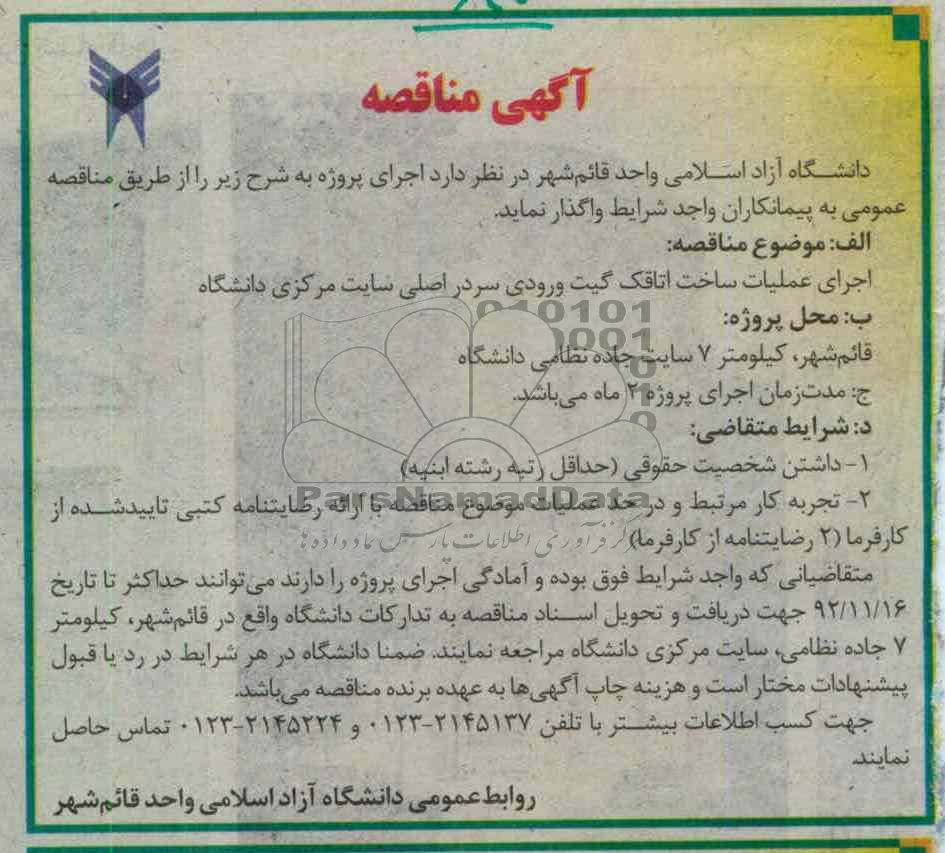 آگهی مناقصه
دانشگاه آزاد اسلامی واحد قائم‌شهر در نظر دارد اجرای پروژه به شرح زیر را از طریق مناقصه
عمومی به پیمانکاران واجد شرایط واگذار نماید.
الف: موضوع مناقصه:
اجرای عملیات ساخت اتاقک گیت ورودی سردر اصلی سایت مرکزی دانشگاه
ب: محل پروژه:
قائم‌شهر، کیلومتر ۷ سایت جاده نظامی دانشگاه
ج: مدت‌زمان اجرای پروژه ۲ ماه می‌باشد.
د: شرایط متقاضی:
۱- داشتن شخصیت حقوقی (حداقل رتبه رشته ابنیه)
۲- تجربه کار مرتبط و در حد عملیات موضوع مناقصه با ارائه رضایتنامه کتبی تاییدشده از
کارفرما (۲ رضایتنامه از کارفرما)
متقاضیانی که واجد شرایط فوق بوده و آمادگی اجرای پروژه را دارند می‌توانند حداکثر تا تاریخ
۹۲/۱۱/۱۶ جهت دریافت و تحویل اسناد مناقصه به تدارکات دانشگاه واقع در قائم‌شهر، کیلومتر
۷ جاده نظامی، سایت مرکزی دانشگاه مراجعه نمایند. ضمنا دانشگاه در هر شرایط در رد یا قبول
پیشنهادات مختار است و هزینه چاپ آگهی‌ها به عهده برنده مناقصه می‌باشد.
جهت کسب اطلاعات بیشتر با تلفن ۲۱۴۵۱۳۷-۰۱۲۳ و ۲۱۴۵۲۲۴-۰۱۲۳ تماس حاصل
نمایند.
روابط‌عمومی دانشگاه آزاد اسلامی واحد قائم‌شهر
ParsNamadData